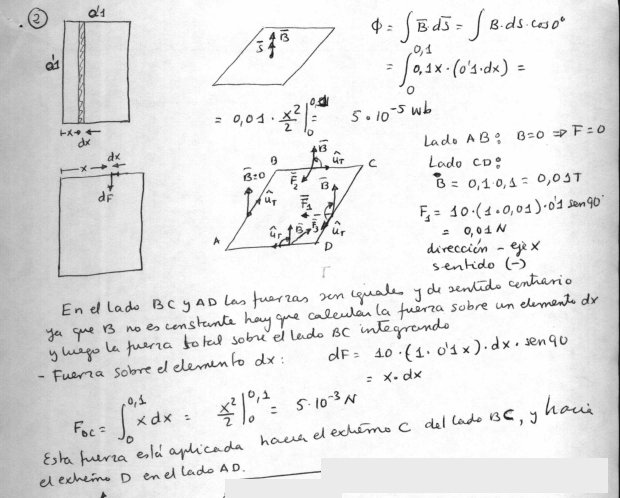 2
0'1
0'1
x
dx
B̄
S̄
Φ = ∫ B̄·dS̄ = ∫ B·ds·cos0º
= ∫₀^0,1 0,1x·(0'1·dx) =
= 0,01 · x²/2 |₀^0,1 = 5·10⁻⁵ Wb
x
dx
dF̄
B
C
A
D
B̄=0
û_T
F̄₂
B̄
û_T
B̄
F̄₁
û_T
û_T
B̄
F̄₃
Lado AB: B=0 ⇒ F̄=0
Lado CD:
B̄ = 0,1·0,1 = 0,01T
F₁ = 10·(1·0,01)·0'1 sen90º
= 0,01N
dirección - eje X
sentido (-)
En el lado BC y AD las fuerzas son iguales y de sentido contrario
ya que B no es constante hay que calcular la fuerza sobre un elemento dx
y luego la fuerza total sobre el lado BC integrando
- Fuerza sobre el elemento dx: dF = 10·(1·0'1x)·dx·sen90
= x·dx
F_BC = ∫₀^0,1 x dx = x²/2 |₀^0,1 = 5·10⁻³ N
Esta fuerza está aplicada hacia el extremo C del lado BC, y hacia
el extremo D en el lado AD.